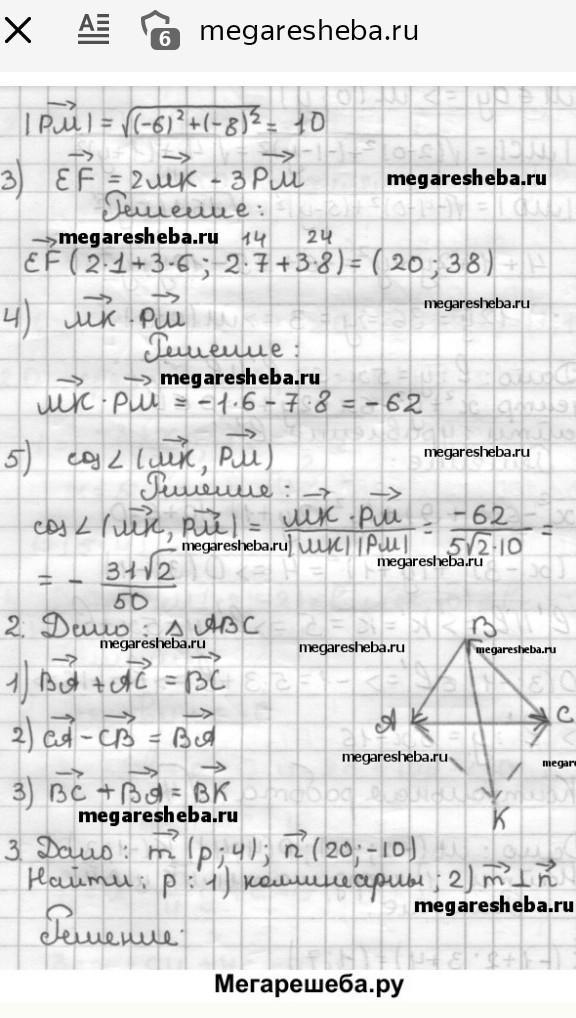 megaresheba.ru
6
|PM| = √(-6)²+(-8)² = 10
3) EF = 2MK - 3PM
megaresheba.ru
Решение:
megaresheba.ru 14 24
EF (2·1+3·6; 2·7+3·8) = (20; 38)
megaresheba.ru
4) MK · PM
Решение:
megaresheba.ru
MK · PM = -1·6 - 7·8 = -62
megaresheba.ru
5) cos∠(MK, PM)
Решение:
cos∠(MK, PM) = MK · PM / |MK| |PM| = -62 / 5√2·10 =
megaresheba.ru
megaresheba.ru
= - 31√2 / 50
2. Дано: △ ABC
megaresheba.ru
megaresheba.ru
megaresheba.ru
1) BA + AC = BC
2) CA - CB = BA
3) BC + BA = BK
megaresheba.ru
B
A
C
K
megaresheba.ru
megar
3. Дано: m (p; 4); n (20; -10)
Найти: p: 1) коллинеарны; 2) m ⊥ n
megaresheba.ru
Решение:
Мегарешеба.ру